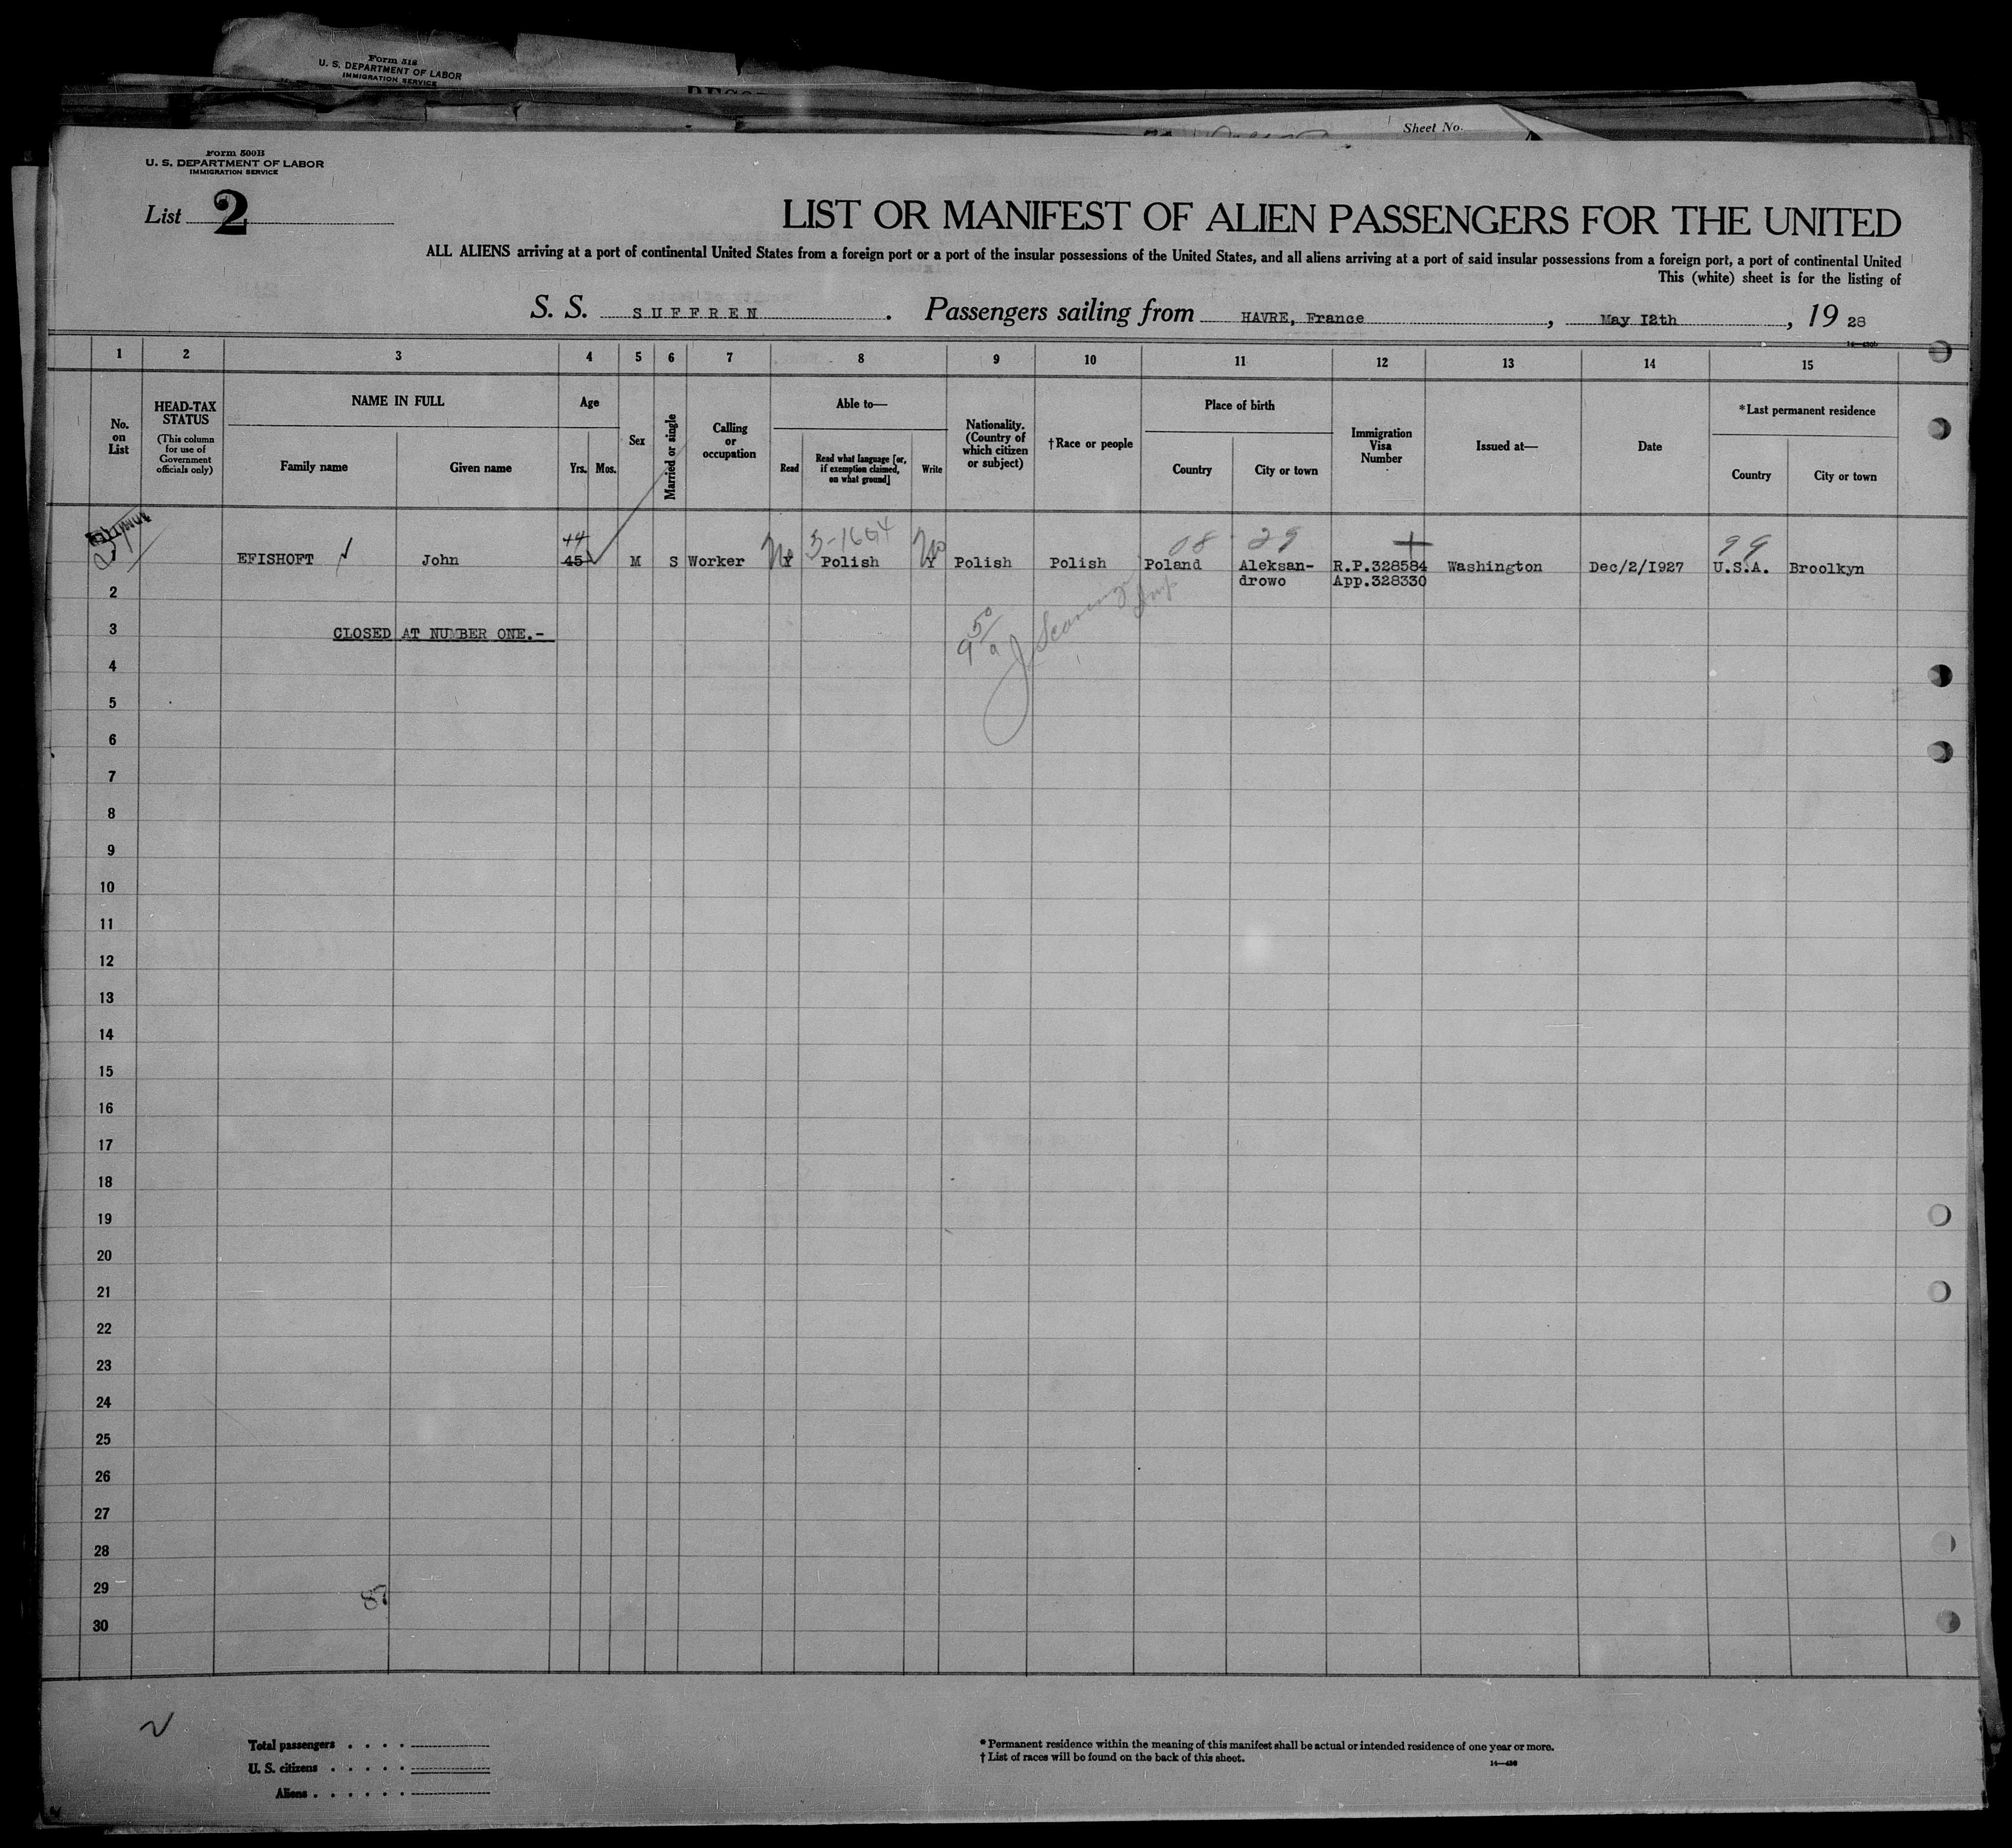 Form 518
U. S. DEPARTMENT OF LABOR
IMMIGRATION SERVICE
Sheet No.
Form 500B
U. S. DEPARTMENT OF LABOR
IMMIGRATION SERVICE
List 2
LIST OR MANIFEST OF ALIEN PASSENGERS FOR THE UNITED
ALL ALIENS arriving at a port of continental United States from a foreign port or a port of the insular possessions of the United States, and all aliens arriving at a port of said insular possessions from a foreign port, a port of continental United
This (white) sheet is for the listing of
S. S. SUFFREN . Passengers sailing from HAVRE, France , May I2th , 19 28
1 2 3 4 5 6 7 8 9 10 11 12 13 14 15
No. on List
HEAD-TAX STATUS
(This column for use of Government officials only)
NAME IN FULL
Family name Given name
Age
Yrs. Mos.
Sex
Married or single
Calling or occupation
Able to—
Read
Read what language [or, if exemption claimed, on what ground]
Write
Nationality. (Country of which citizen or subject)
†Race or people
Place of birth
Country City or town
Immigration Visa Number
Issued at—
Date
*Last permanent residence
Country City or town
44 No 3-1664 No 08 29 99
EFISHOFT John 45 M S Worker Y Polish Y Polish Polish Poland Aleksan- R.P.328584 Washington Dec/2/I927 U.S.A. Broolkyn
drowo App.328330
2
3 CLOSED AT NUMBER ONE.-
4
5
6
7
8
9
10
11
12
13
14
15
16
17
18
19
20
21
22
23
24
25
26
27
28
29
30
Total passengers . . . .
U. S. citizens . . . . .
Aliens . . . . . .
* Permanent residence within the meaning of this manifest shall be actual or intended residence of one year or more.
† List of races will be found on the back of this sheet.